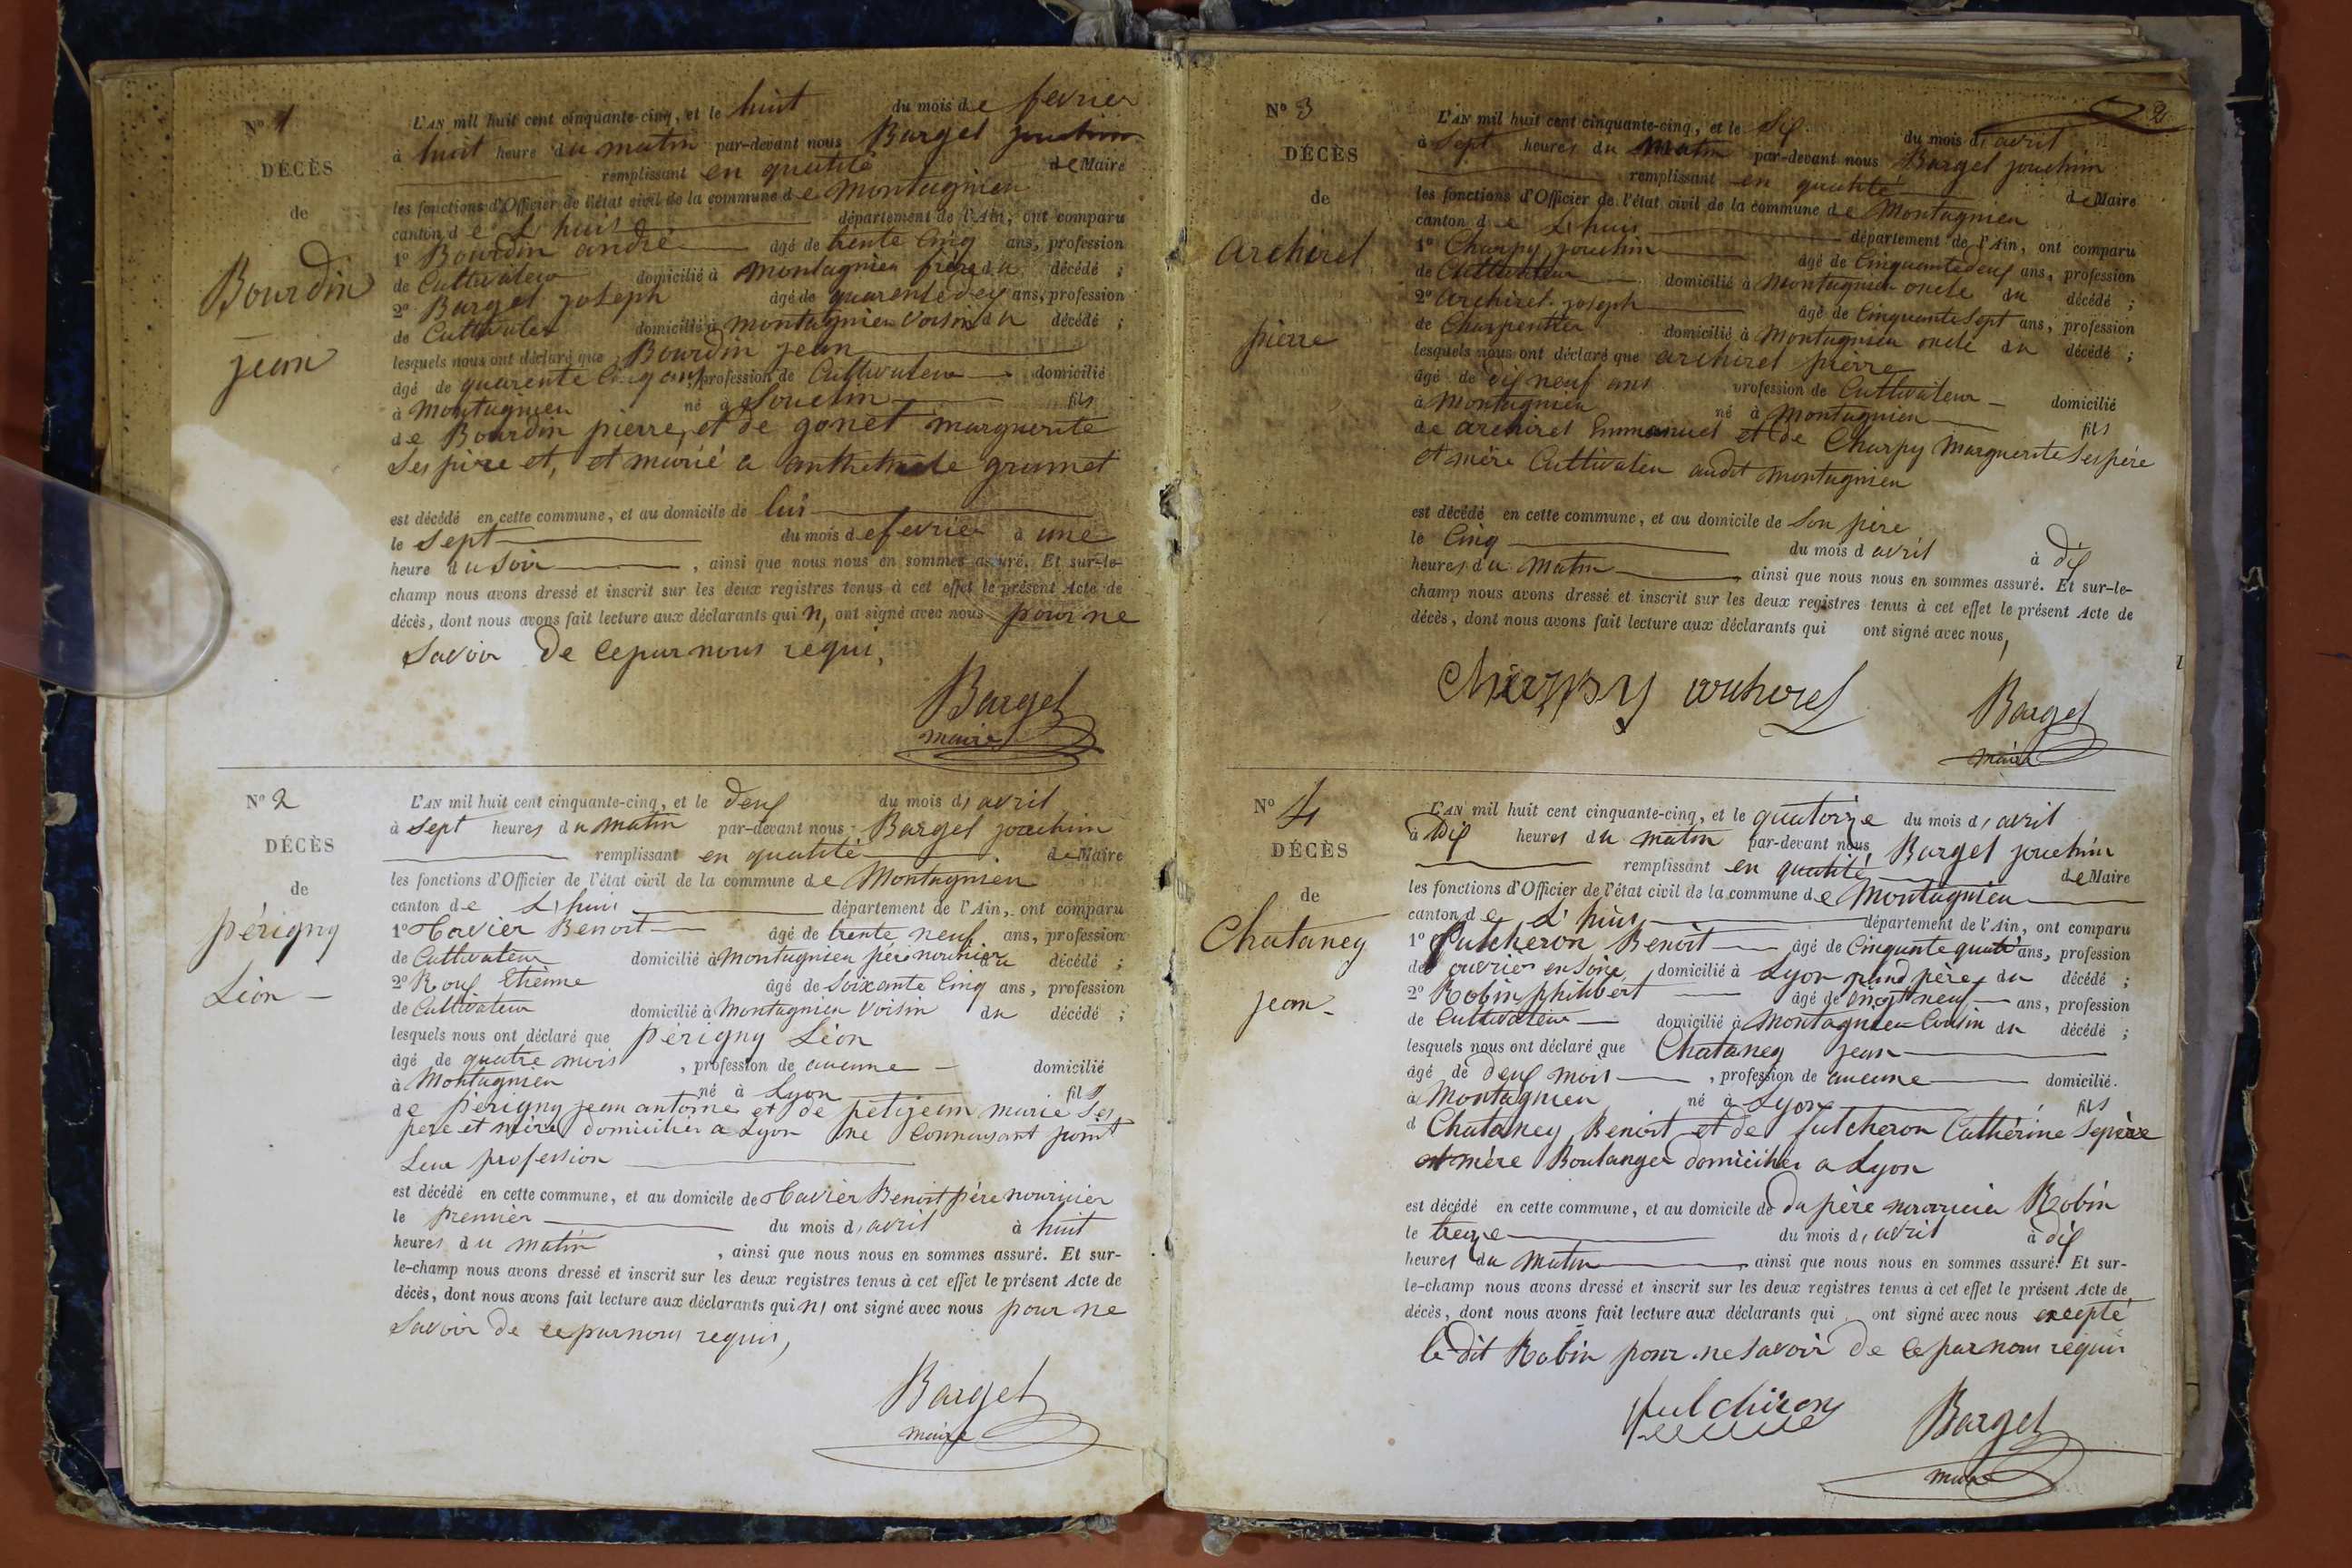 N° 1
DÉCÈS
de
Bourdin
jean
L'AN mil huit cent cinquante-cinq, et le huit du mois de fevrier
à huit heure du matin par-devant nous Barget joachim
remplissant en qualité de Maire
les fonctions d'Officier de l'état civil de la commune de Montagnieu
canton de L'huis département de l'Ain, ont comparu
1° Bourdin andré agé de trente Cinq ans, profession
de Cultivateur domicilié à montagnieu frère du décédé ;
2° Barget joseph âgé de quarente deux ans, profession
de Cultivateur domicilié à montagnieu Voisin du décédé ;
lesquels nous ont déclaré que Bourdin jean
âgé de quarente Cinq ans, profession de Cultivateur domicilié
à Montagnieu né à Souclin fils
de Bourdin pierre, et de gonet marguerite
Ses père et, et marié a anthelmele grumet
est décédé en cette commune, et au domicile de lui
le Sept du mois de fevrier à une
heure du Soir , ainsi que nous nous en sommes assuré. Et sur-le-
champ nous avons dressé et inscrit sur les deux registres tenus à cet effet le présent Acte de
décès, dont nous avons fait lecture aux déclarants qui n, ont signé avec nous pour ne
Savoir de ce par nous requi,
Barget
maire
N° 2
DÉCÈS
de
périgny
Léon
L'AN mil huit cent cinquante-cinq, et le deux du mois d, avril
à Sept heures du matin par-devant nous Barget joachim
remplissant en qualité de Maire
les fonctions d'Officier de l'état civil de la commune de Montagnieu
canton de L'huis département de l'Ain, ont comparu
1° Benoit âgé de trente neuf ans, profession
de Cultivateur domicilié à Montagnieu père nouricier du décédé ;
2° Roux Etienne âgé de Soixante Cinq ans, profession
de Cultivateur domicilié à Montagnieu Voisin du décédé ;
lesquels nous ont déclaré que périgny Léon
âgé de quatre mois , profession de aucune domicilié
à Montagnieu né à Lyon fils
de périgny jean antoine et de petijean marie Ses
pere et mère domicilies a Lyon ne Connaisant point
Leur profession
est décédé en cette commune, et au domicile de Benoit père nouricier
le premier du mois d, avril à huit
heures du matin , ainsi que nous nous en sommes assuré. Et sur-
le-champ nous avons dressé et inscrit sur les deux registres tenus à cet effet le présent Acte de
décès, dont nous avons fait lecture aux déclarants qui n, ont signé avec nous pour ne
Savoir de ce par nous requis,
Barget
maire
2
N° 3
DÉCÈS
de
archirel
pierre
L'AN mil huit cent cinquante-cinq, et le Six du mois d, avril
à Sept heures du Matin par-devant nous Barget joachim
remplissant en qualité de Maire
les fonctions d'Officier de l'état civil de la commune de Montagnieu
canton de L'huis département de l'Ain, ont comparu
1° Charpy joachim âgé de Cinquante deux ans, profession
de Cultivateur domicilié à Montagnieu oncle du décédé ;
2° archirel joseph âgé de Cinquante Sept ans, profession
de Charpentier domicilié à Montagnieu oncle du décédé ;
lesquels nous ont déclaré que archirel pierre
âgé de dix neuf ans profession de Cultivateur domicilié
à Montagnieu né à Montagnieu fils
de archirel Emmanuel et de Charpy Marguerite Ses père
et mère Cultivateu audit montagnieu
est décédé en cette commune, et au domicile de Son père
le Cinq du mois d avril à dix
heures du Matin ainsi que nous nous en sommes assuré. Et sur-le-
champ nous avons dressé et inscrit sur les deux registres tenus à cet effet le présent Acte de
décès, dont nous avons fait lecture aux déclarants qui ont signé avec nous,
Charpy archirel
Barget
maire
N° 4
DÉCÈS
de
Chataney
jean
L'AN mil huit cent cinquante-cinq, et le quatorze du mois d, avril
à Dix heures du matin par-devant nous Barget joachim
remplissant en qualité de Maire
les fonctions d'Officier de l'état civil de la commune de Montagnieu
canton de L'huis département de l'Ain, ont comparu
1° futcheron Benoit âgé de Cinquante quatre ans, profession
de ouvrier en Soie domicilié à Lyon grand père du décédé ;
2° Robin philibert âgé de vingt neuf ans, profession
de Cultivateur domicilié à Montagnieu Cousin du décédé ;
lesquels nous ont déclaré que Chataney jean
âgé de deux mois , profession de aucune domicilié.
à Montagnieu né à Lyon fils
d Chataney Benoit et de futcheron Cathérine Sepère
et mère Boulanger domicilies a Lyon
est décédé en cette commune, et au domicile de du père nourricier Robin
le treize du mois d, avril à dix
heures du Matin ainsi que nous nous en sommes assuré. Et sur-
le-champ nous avons dressé et inscrit sur les deux registres tenus à cet effet le présent Acte de
décès, dont nous avons fait lecture aux déclarants qui ont signé avec nous excepté
le dit Robin pour ne Savoir de ce par nous requis
fulchiron
Barget
maire